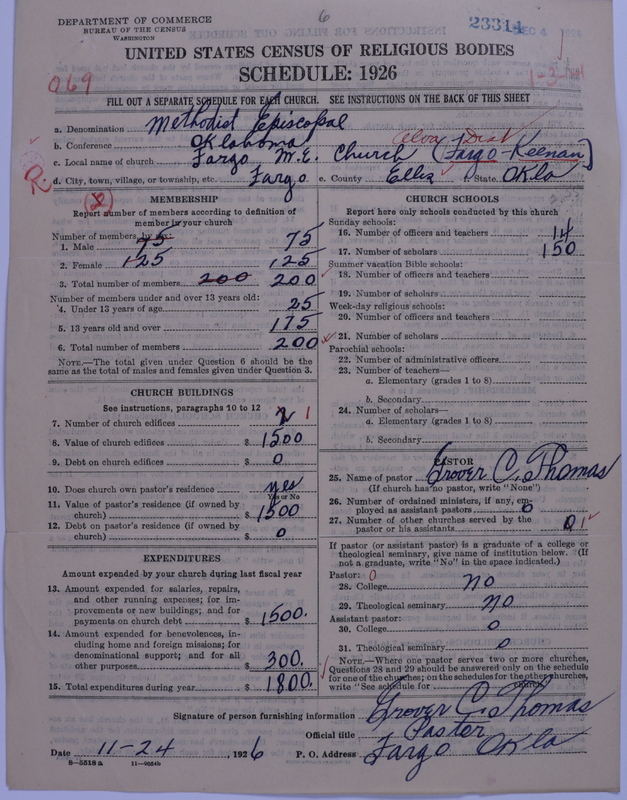 DEPARTMENT OF COMMERCE
BUREAU OF THE CENSUS
WASHINGTON
6
23314
DEC 4
UNITED STATES CENSUS OF RELIGIOUS BODIES
SCHEDULE: 1926
069
1-3
FILL OUT A SEPARATE SCHEDULE FOR EACH CHURCH. SEE INSTRUCTIONS ON THE BACK OF THIS SHEET
a. Denomination Methodist Episcopal
b. Conference Oklahoma Alva Dist
c. Local name of church Fargo M.E. Church (Fargo-Keenan)
d. City, town, village, or township, etc. Fargo e. County Ellis f. State Okla
R
MEMBERSHIP
Report number of members according to definition of
member in your church
Number of members by sex:
1. Male 75 75
2. Female 125 125
3. Total number of members 200 200
Number of members under and over 13 years old:
4. Under 13 years of age 25
5. 13 years old and over 175
6. Total number of members 200
NOTE.—The total given under Question 6 should be the
same as the total of males and females given under Question 3.
CHURCH BUILDINGS
See instructions, paragraphs 10 to 12
7. Number of church edifices 2 1
8. Value of church edifices $ 1500
9. Debt on church edifices $ 0
10. Does church own pastor's residence yes
Yes or No
11. Value of pastor's residence (if owned by
church) $ 1500
12. Debt on pastor's residence (if owned by
church) $ 0
EXPENDITURES
Amount expended by your church during last fiscal year
13. Amount expended for salaries, repairs,
and other running expenses; for im-
provements or new buildings; and for
payments on church debt $ 1500.
14. Amount expended for benevolences, in-
cluding home and foreign missions; for
denominational support; and for all
other purposes $ 300.
15. Total expenditures during year $ 1800.
CHURCH SCHOOLS
Report here only schools conducted by this church
Sunday schools:
16. Number of officers and teachers 14
17. Number of scholars 150
Summer vacation Bible schools:
18. Number of officers and teachers
19. Number of scholars
Week-day religious schools:
20. Number of officers and teachers
21. Number of scholars
Parochial schools:
22. Number of administrative officers
23. Number of teachers—
a. Elementary (grades 1 to 8)
b. Secondary
24. Number of scholars—
a. Elementary (grades 1 to 8)
b. Secondary
PASTOR
25. Name of pastor Grover C. Thomas
(If church has no pastor, write "None")
26. Number of ordained ministers, if any, em-
ployed as assistant pastors 0
27. Number of other churches served by the
pastor or his assistants 0 1
If pastor (or assistant pastor) is a graduate of a college or
theological seminary, give name of institution below. (If
not a graduate, write "No" in the space indicated.)
Pastor: 0
28. College no
29. Theological seminary no
Assistant pastor:
30. College 0
31. Theological seminary 0
NOTE.—Where one pastor serves two or more churches,
Questions 28 and 29 should be answered only on the schedule
for one of the churches; on the schedules for the other churches,
write "See schedule for church."
Signature of person furnishing information Grover C. Thomas
Official title Pastor
Date 11-24, 1926 P. O. Address Fargo Okla
8-5518a 11-9554b